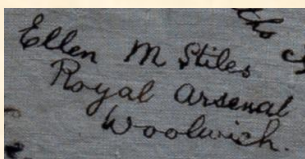 Ellen M Stiles
Royal Arsenal
Woolwich.